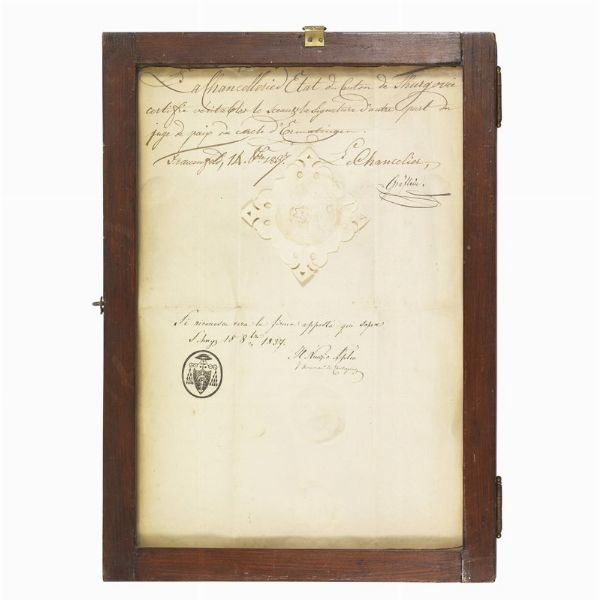 La Chancellerie d'Etat du Canton de Thurgovie
certifie véritables le Sceau & la Signature d'autre part du
juge de paix du cercle d'Ermatingen.
Frauenfeld, 14. 8bre 1837. Le Chancelier,
Si riconosce vera la firma apposta qui sopra
Schwyz 18 8bre 1837.
Il Nunzio Aplico